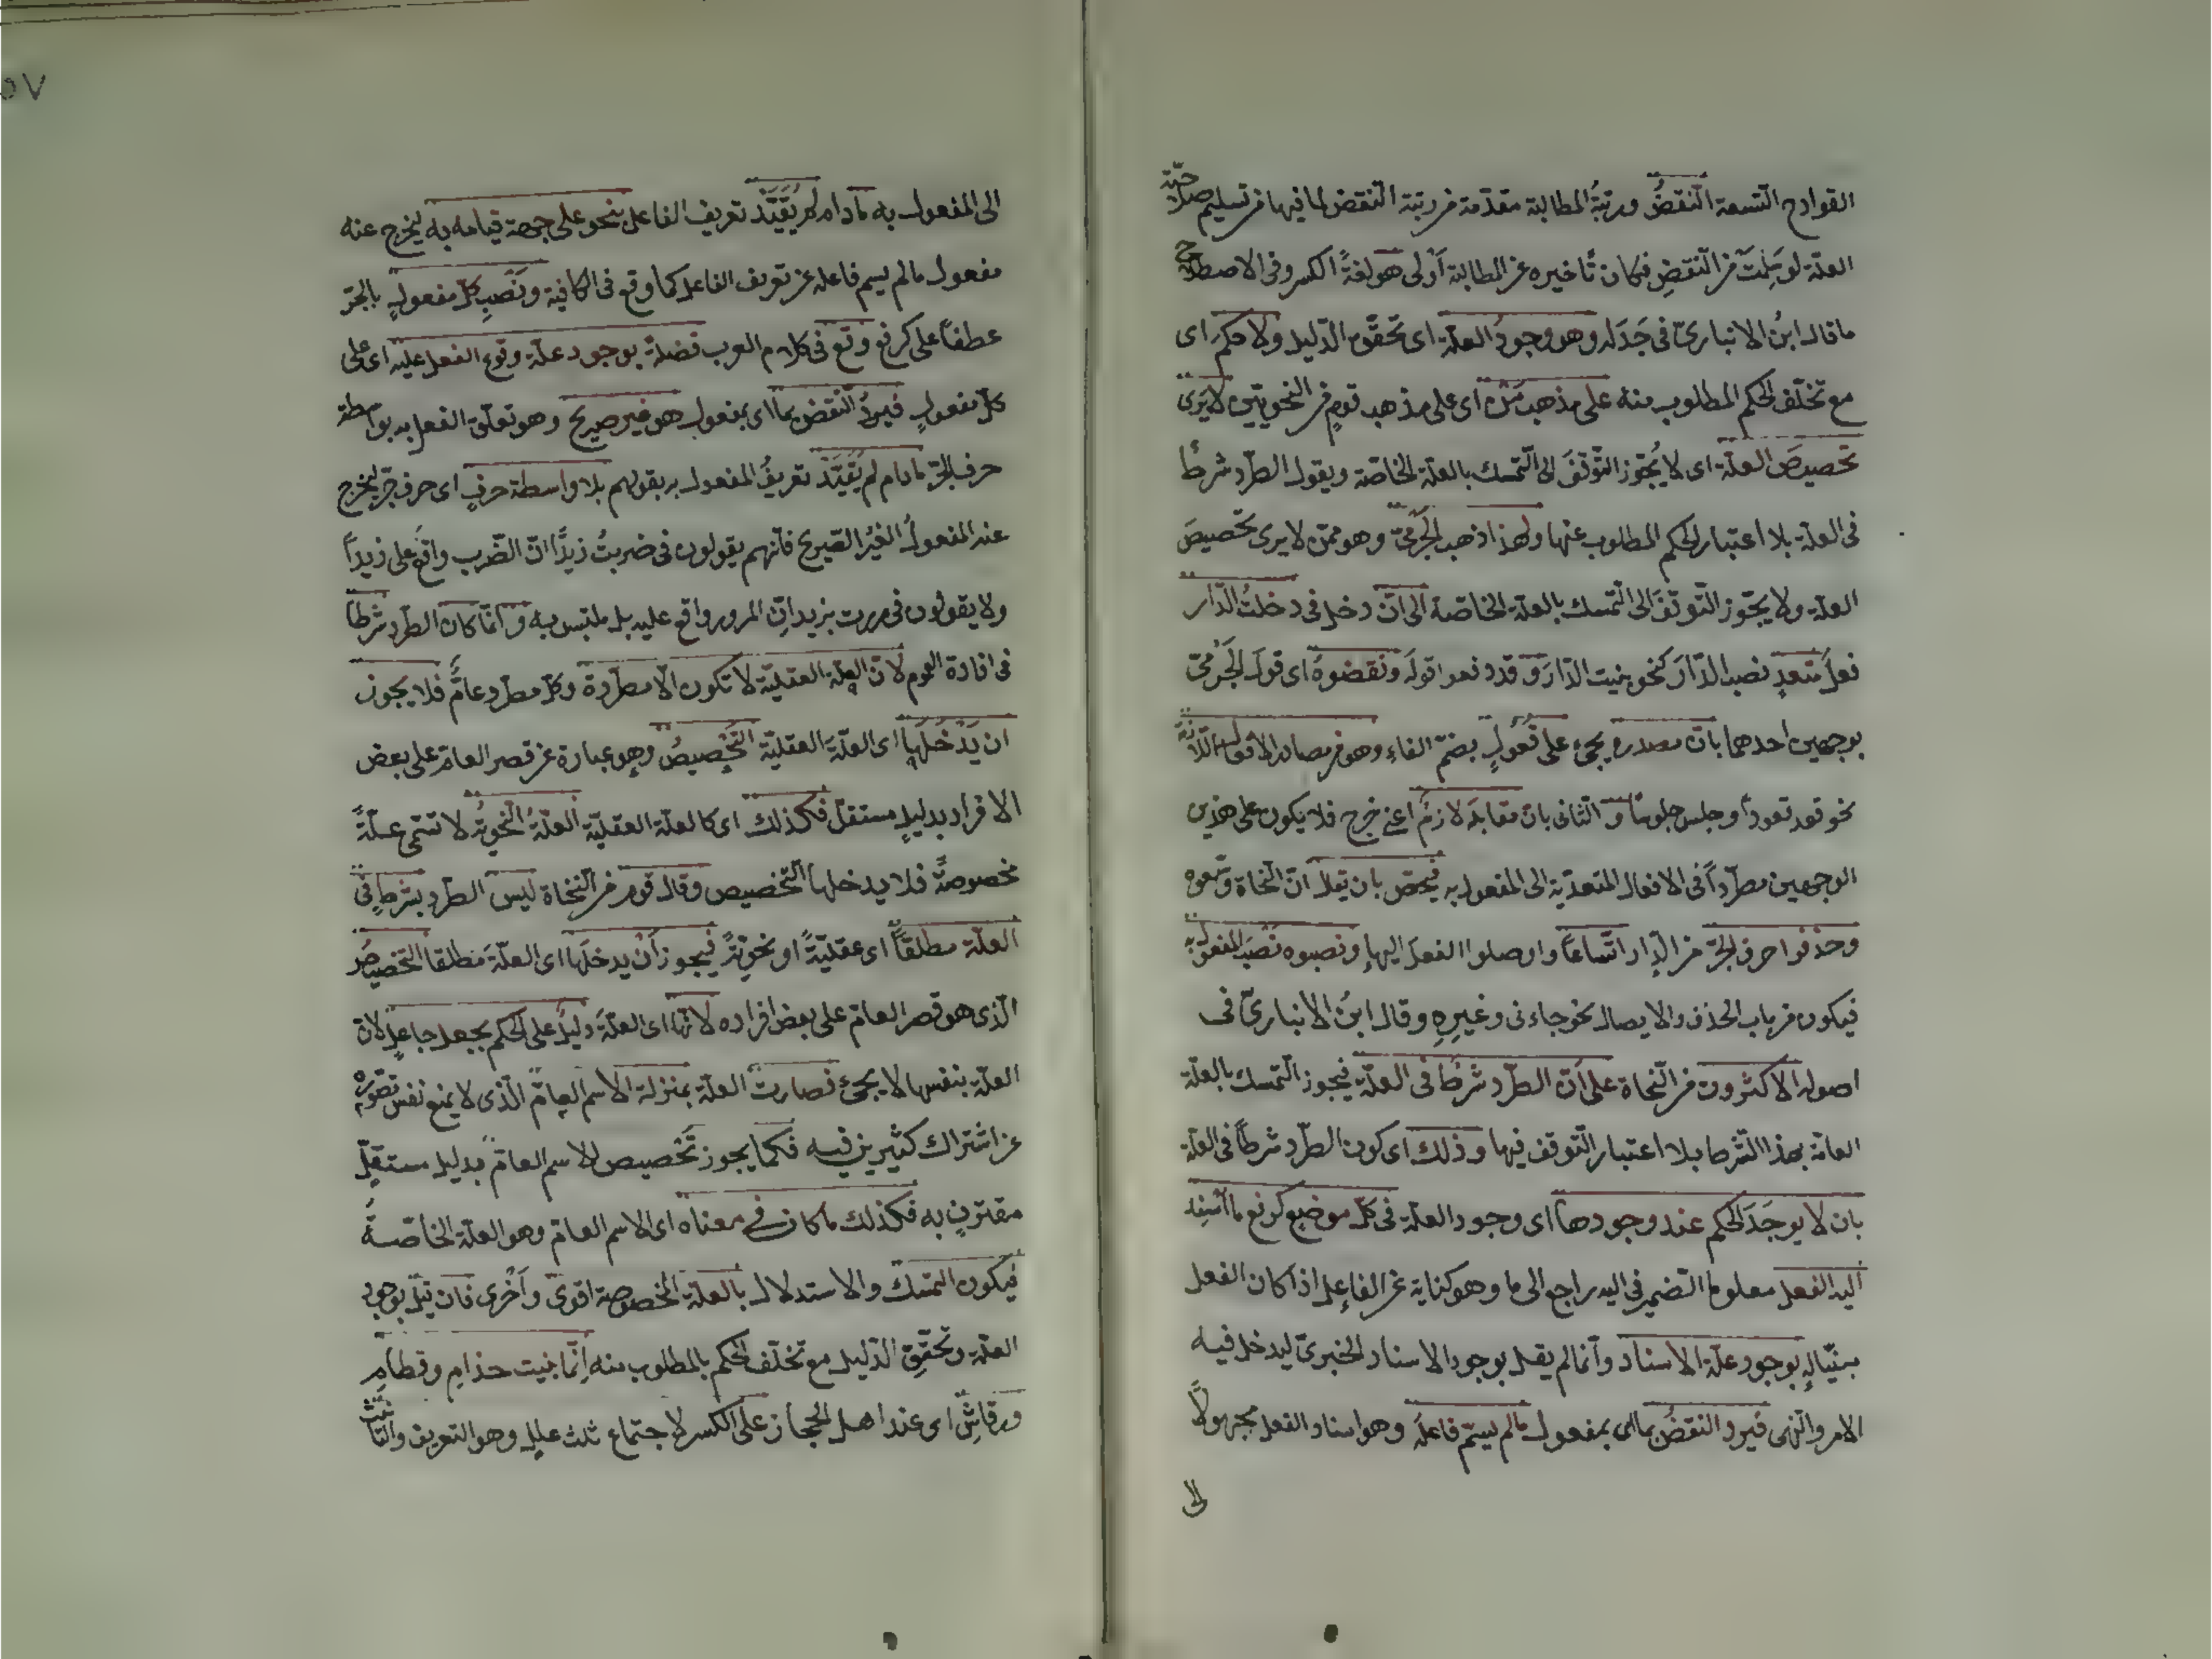 القوادح التسعة النّقضُ ورتبةُ المطالبة مقدّمة من رتبة النّقض لما فيها من تسليم صلاحيّة
العلّة لو سَلِمَتْ من النّقضِ فكان تأخيره عن المطالبة أَوْلى هو لغةً الكسر وفى الاصطلاح
ما قال ابنُ الانبارىّ فى جَدَله وهو وجودُ العلّة اى تحقّق الدّليل ولا حكم اى
مع تخلّف الحكم المطلوب منه على مذهب مَنْ اى على مذهب قومٍ من النحويّين لا يَرى
تخصيصَ العلّة اى لا يُجوّز التّوقّفَ الى التّمسك بالعلّة الخاصّة ويقول الطّرد شرطًا
فى العلّة بلا اعتبار الحكم المطلوب عنها ولهذا ذهب الجَرْمىّ وهو ممّن لا يرى تخصيصَ
العلّة ولا يجوّز التّوقّفَ الى التّمسك بالعلّة الخاصّة الى انّ دخل فى دخلتُ الدّار
فعلٌ متعدٍ نصب الدّارَ كنحو بنيت الدّارَ وقد دفعوا قولَه ونقضوهُ اى قولَ الجَرْمىّ
بوجهين احدهما بانّ مصدره يجئ على فُعُولٍ بضمّ الفاء وهو من مصادر الافعال اللّازمة
نحو قعد قعوداً وجلس جلوسًا و الثّانى بانّ مقابلَه لازمٌ اعنى خرج فلا يكون على هذين
الوجهين مطّرداً فى الافعال المتعدّية الى المفعول به فيخصّ بان يقال انّ النّحاة وسّعوه
وحذفوا حرف الجرّ من الدّار اتّساعًا واوصلوا الفعلَ اليها ونصبوه نَصْبَ المفعول به
فيكون من باب الحذف والايصال نحو جاءنى وغيرِهِ وقال ابنُ الانبارىّ فى
اصوله الاكثرون من النّحاة على انّ الطّرد شرطٌ فى العلّة فيجوز التّمسك بالعلّة
العامّة بهذا الشّرط بلا اعتبار التّوقف فيها وذلك اى كون الطّرد شرطًا فى العلّة
بان لا يوجَدَ الحكم عند وجودها اى وجود العلّة فى كلّ موضع كرفع ما اُسْنِد
اليه الفعل معلوما الضّمير فى اليه راجع الى ما وهو كناية عن الفاعل اذا كان الفعل
مبنيّا له بوجود علّة الاسناد وانّما لم يقل بوجود الاسناد الخبرىّ ليدخل فيه
الامر والنّهى فيرد النقضُ بما اى بمفعول ما لم يسمّ فاعلُه وهو اسناد الفعل مجهولًا
الى
٥٧
الى المفعول به ما دام لم يُقَيَّدْ تعريف الفاعل بنحو على جهة قيامه به ليخرج عنه
مفعول ما لم يسم فاعله عن تعريف الفاعل كما وقع فى الكافية ونَصْبِ كلّ مفعولٍ بالجرّ
عطفًا على كرفع وقع فى كلام العرب فضلةً بوجود علّة وقوع الفعل عليه اى على
كلّ مفعولٍ فيرِدُ النّقض بما اى بمفعول هو غير صريح وهو تعلّق الفعل به بواسطة
حرف الجرّ ما دام لم يُقَيَّدْ تعريفُ المفعول به بقولهم بلا واسطة حرفٍ اى حرف جرّ ليخرج
عنه المفعولُ الغيرُ الصّريح فانّهم يقولون فى ضربتُ زيدًا انّ الضّرب واقع على زيداً
ولا يقولون فى مررت بزيد انّ المرور واقع عليه بل ملتبس به وانّما كان الطّرد شرطًا
فى افادة العموم لانّ العلّة العقليّة لا تكون الّا مطّردة وكلّ مطّرد عامٌّ فلا يجوز
ان يَدْخُلَها اى العلّةَ العقليّة التّخصيصُ وهو عبارة عن قصر العامّ على بعض
الافراد بدليلٍ مستقلّ فكذلك اى كالعلّة العقليّة العلّةُ النّحويّةُ لا تسمّى علّةً
مخصوصةً فلا يدخلها التّخصيص وقال قوم من النّحاة ليس الطّرد بشرطٍ فى
العلّة مطلقًا اى عقليّةً او نحويّةً فيجوز اَنْ يدخلَها اى العلّةَ مطلقا التّخصيصُ
الّذى هو قصر العامّ على بعض افراده لانّها اى العلّةَ دليلٌ على الحكم بجعل جاعلٍ لانّ
العلّة بنفسها لا يجئ فصارت العلّة بمنزلة الاسم العامّ الّذى لا يمنع نفس تصوّره
عن اشتراك كثيرين فيه فكما يجوز تَخْصيص الاسم العامّ بدليل مستقلٍّ
مقترنٍ به فكذلك ما كان فى معناه اى الاسم العامّ وهو العلّة الخاصّةُ
فيكون التمسّك والاستدلال بالعلّة المخصوصة اقوى وأَحْرى فان قيل بوجود
العلّة وتحقّقِ الدّليل مع تخلّف الحكم بالمطلوب منه اِنّما بنيت حذامِ وقطامِ
ورقاشِ اى عند اهل الحجاز على الكسر لاجتماع ثلث عللٍ وهو التعريف والتّأنيث